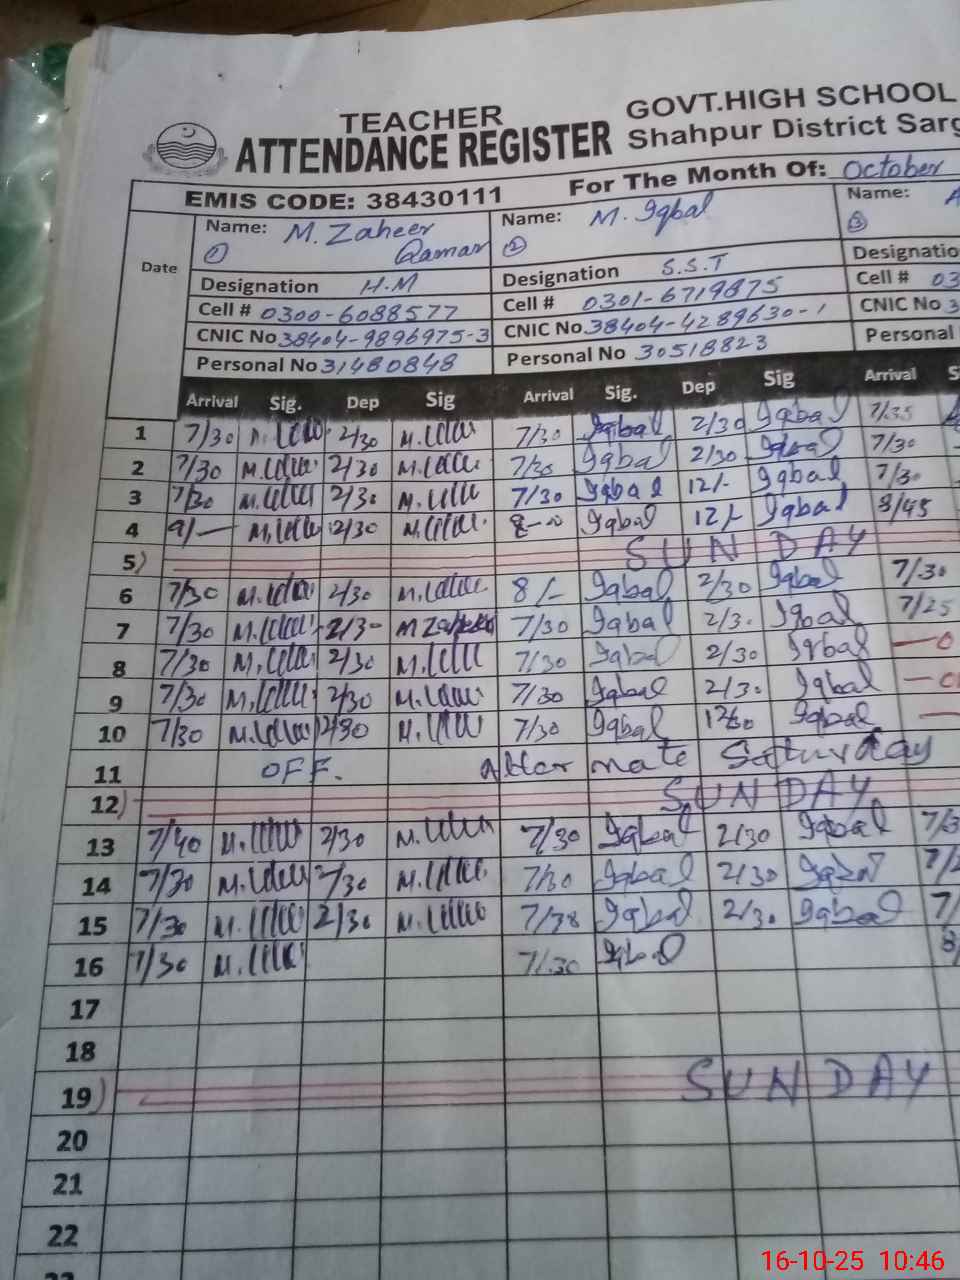 TEACHER
ATTENDANCE REGISTER
GOVT.HIGH SCHOOL
Shahpur District Sarg
EMIS CODE: 38430111 For The Month Of: October
Date
Name: M. Zaheer Qamar
①
Designation H.M
Cell # 0300-6088577
CNIC No 38404-9896975-3
Personal No 31480848
Name: M. Iqbal
②
Designation S.S.T
Cell # 0301-6719875
CNIC No. 38404-4289630-1
Personal No 30518823
Name: A
③
Designatio
Cell # 03
CNIC No 3
Personal
Arrival Sig. Dep Sig Arrival Sig. Dep Sig Arrival S
1 7/30 2/30 7/30 Iqbal 2/30 Iqbal 7/35
2 7/30 2/30 7/30 Iqbal 2/30 Iqbal 7/30
3 7/30 2/30 7/30 Iqbal 12/- Iqbal 7/30
4 9/— 2/30 8-00 Iqbal 12/- Iqbal 8/45
5) SUNDAY
6 7/30 2/30 8/- Iqbal 2/30 Iqbal 7/30
7 7/30 2/30 M Zaheer 7/30 Iqbal 2/3. Iqbal 7/25
8 7/30 2/30 7/30 Iqbal 2/30 Iqbal
9 7/30 2/30 7/30 Iqbal 2/3. Iqbal
10 7/30 7/30 Iqbal Iqbal
11 OFF. Alter nate Saturday
12) SUNDAY
13 7/40 2/30 7/30 Iqbal 2/30 Iqbal 7/3
14 7/30 2/30 7/30 Iqbal 2/30 Iqbal 7/2
15 7/30 2/30 7/38 Iqbal 2/3. Iqbal 7/
16 7/30 7/.30 Iqbal 8/
17
18
19) SUNDAY
20
21
22
23
16-10-25 10:46